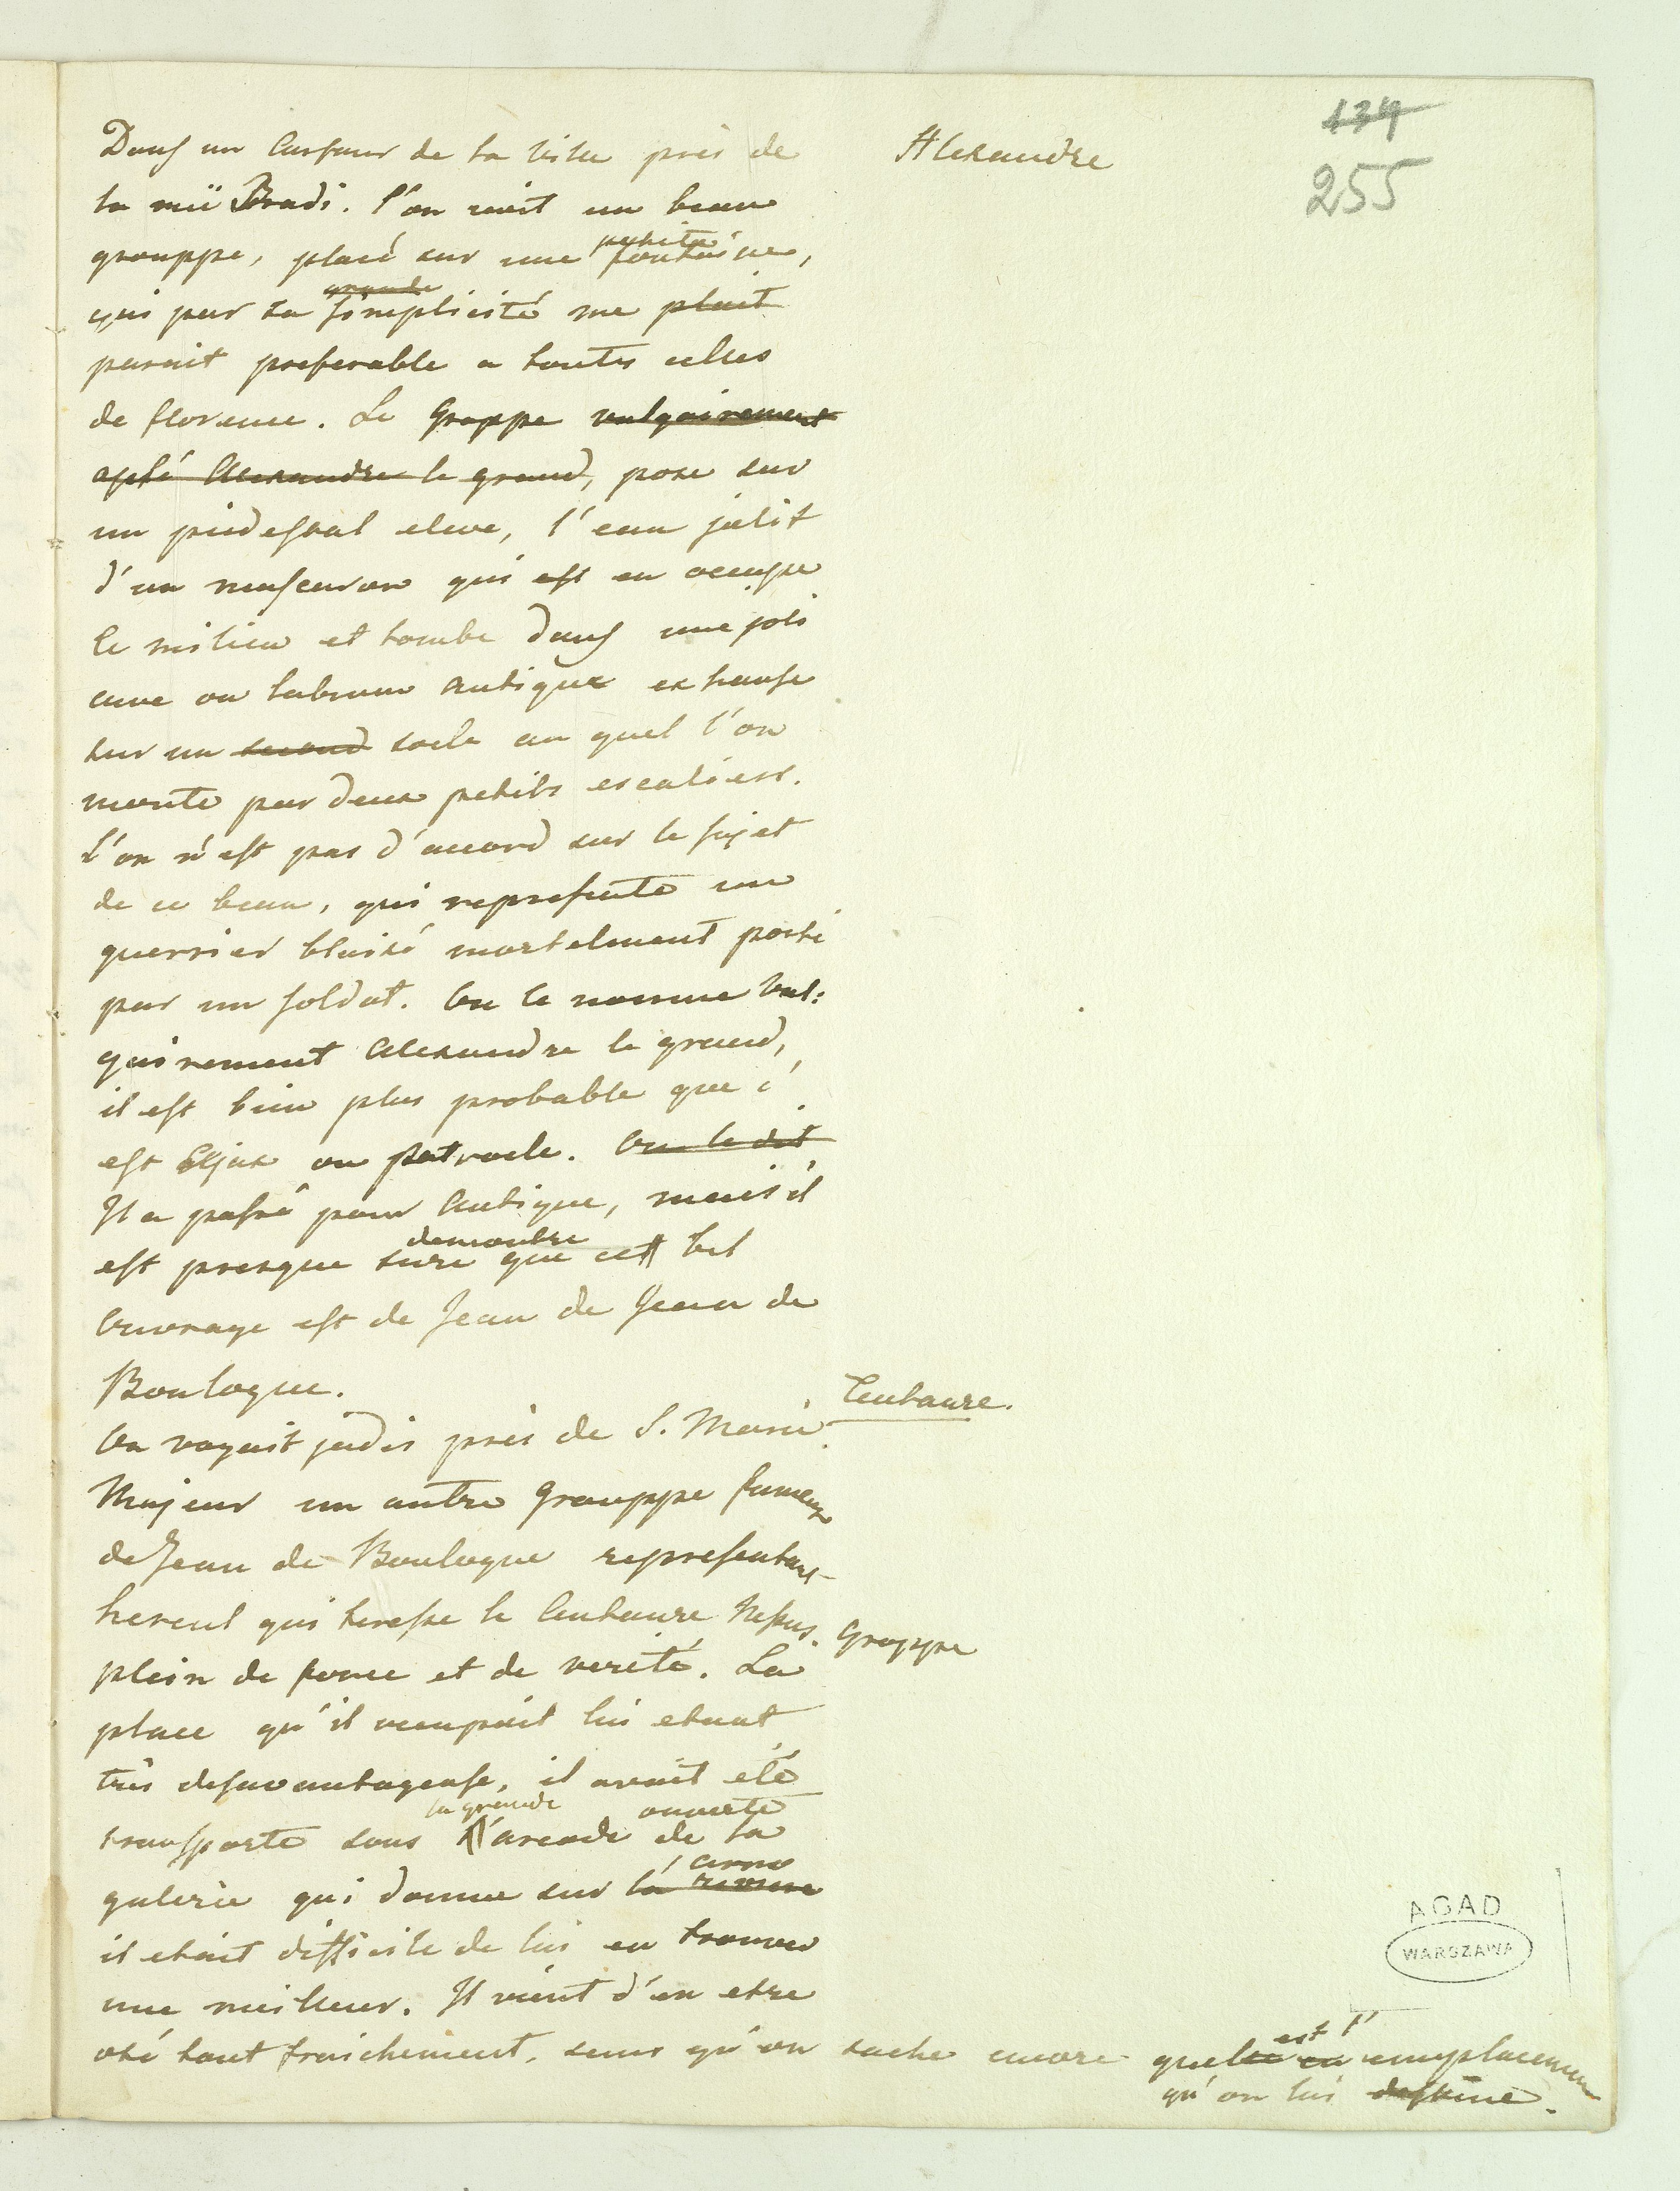 134
255
Alexandre
Dans un Carfour de la ville près de
la rüi Bradi. l'on voit un beau
grouppe, placé sur une petite fontaine,
qui par sa grande simplicité me plait
parait preferable a toutes celles
de florence. Le Grouppe vulgairement
apelé Alexandre le grand, pose sur
un piedestal eleve, l'eau jalit
d'un mascaron qui est en occupe
le milieu et tombe dans une joli
cuve ou labrum Antique exhausse
sur un second socle au quel l'on
monte par deux petits escaliers.
L'on n'est pas d'accord sur le sujet
de ce beau, qui represente un
guerrier blaisé mortelment porté
par un soldat. On le nomme Vul:
gairement Alexandre le grand,
il est bien plus probable que c'
est Ajax ou patrocle. On le dit
Il a passé pour Antique, mais il
est presque sure demontre que cet bel
Ouvrage est de Jean de Jean de
Boulogne.
Centaure.
On voyait jadis près de S. Marie
Majeur un autre Grouppe fameux
de Jean de Boulogne representant
hercul qui terasse le Centaure Nessus. Grouppe
plein de force et de verité. La
place qu'il occupait lui etant
très desavantageuse, il avait eté
transporté sous la grande l'arcade ouverte de la
galerie qui donne sur la riviere l'arno
il etait difficile de lui en trouver
une meilleur. Il vient d'en etre
oté tout fraichement, sans qu'on sache encore quel est l' emplacement
qu'on lui destine.
AGAD
WARSZAWA